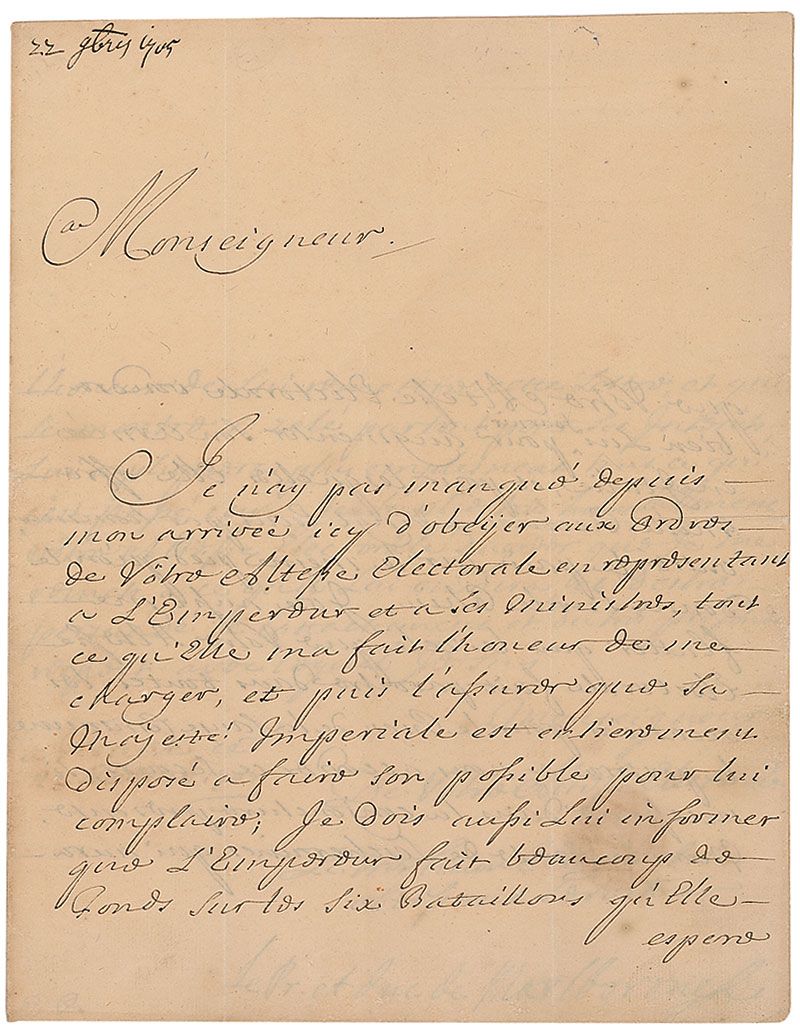 22 9bris 1705
a Monseigneur.
Je n'ay pas manqué depuis
mon arrivéé icy d'obeijer aux Ordres
de Vôtre Altesse Electorale en representant
a L'Empereur et a ses Ministres, tout
ce qu'Elle ma fait l'honeur de me
charger, et puis l'assurer que sa
Majesté Imperiale est entierement
disposé a faire son possible pour lui
complaire; Je dois aussi Lui informer
que L'Empereur fait beaucoup de
Fonds sur les six Bataillons qu'Elle
espere